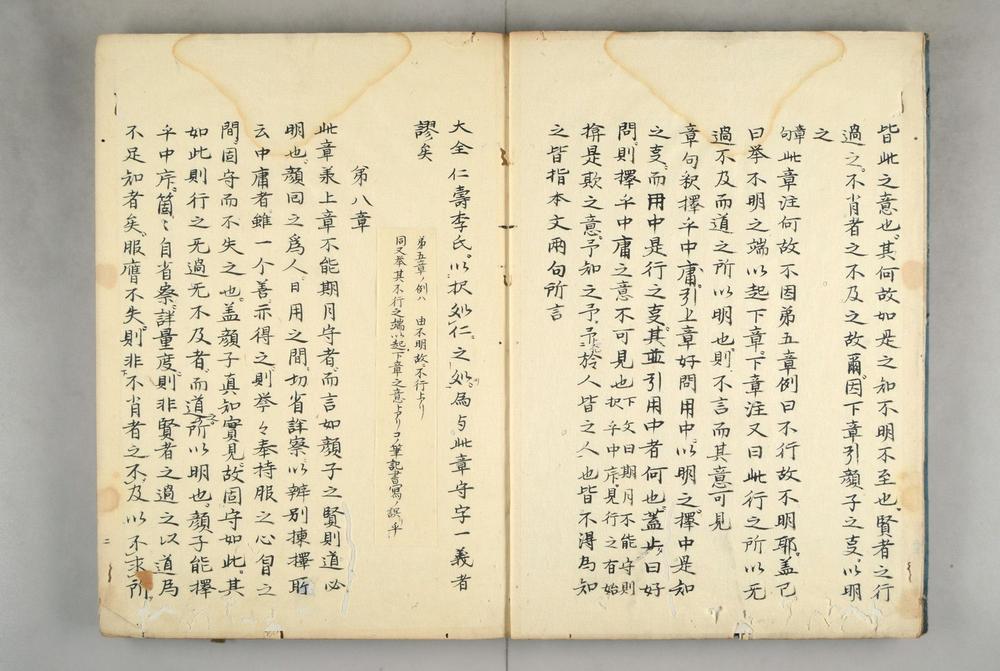 皆此之意也其何故如是之知不明不至也賢者之行
過之不肖者之不及之故爾因下章引顔子之叓以明
之
章句此章注何故不因第五章例曰不行故不明耶盖已
曰举不明之端以起下章下章注又曰此行之所以无
過不及而道之所以明也則不言而其意可見
章句釈擇乎中庸引上章好問用中以明之擇中是知
之叓而用中是行之叓其並引用中者何也蓋曰好
問則擇乎中庸之意不可見也下文曰期月不能守則
択乎中庸見行之有始
揜是欺之意予知之予於人皆之人也皆不淂為知
之皆指本文兩句所言
大全仁壽李氏以択処仁之処為与此章守字一義者
謬矣
第五章ノ例ハ 由不明故不行ヨリ
同又举其不行之端以起下章之意トアリコヽ筆記書寫ノ誤乎
第八章
此章兼上章不能期月守者而言如顔子之賢則道必
明也顔回之爲人日用之間切省詳察以辨別揀擇所
云中庸者雖一个善示得之則举々奉持服之心胷之
間固守而不失之也盖顔子真知實見故固守如此其
如此則行之无過无不及者而道所以明也顔子能擇
乎中庸箇〻自省察詳量度則非賢者之過之以道為
不足知者矣服膺不失則非不肖者之不及以不求所